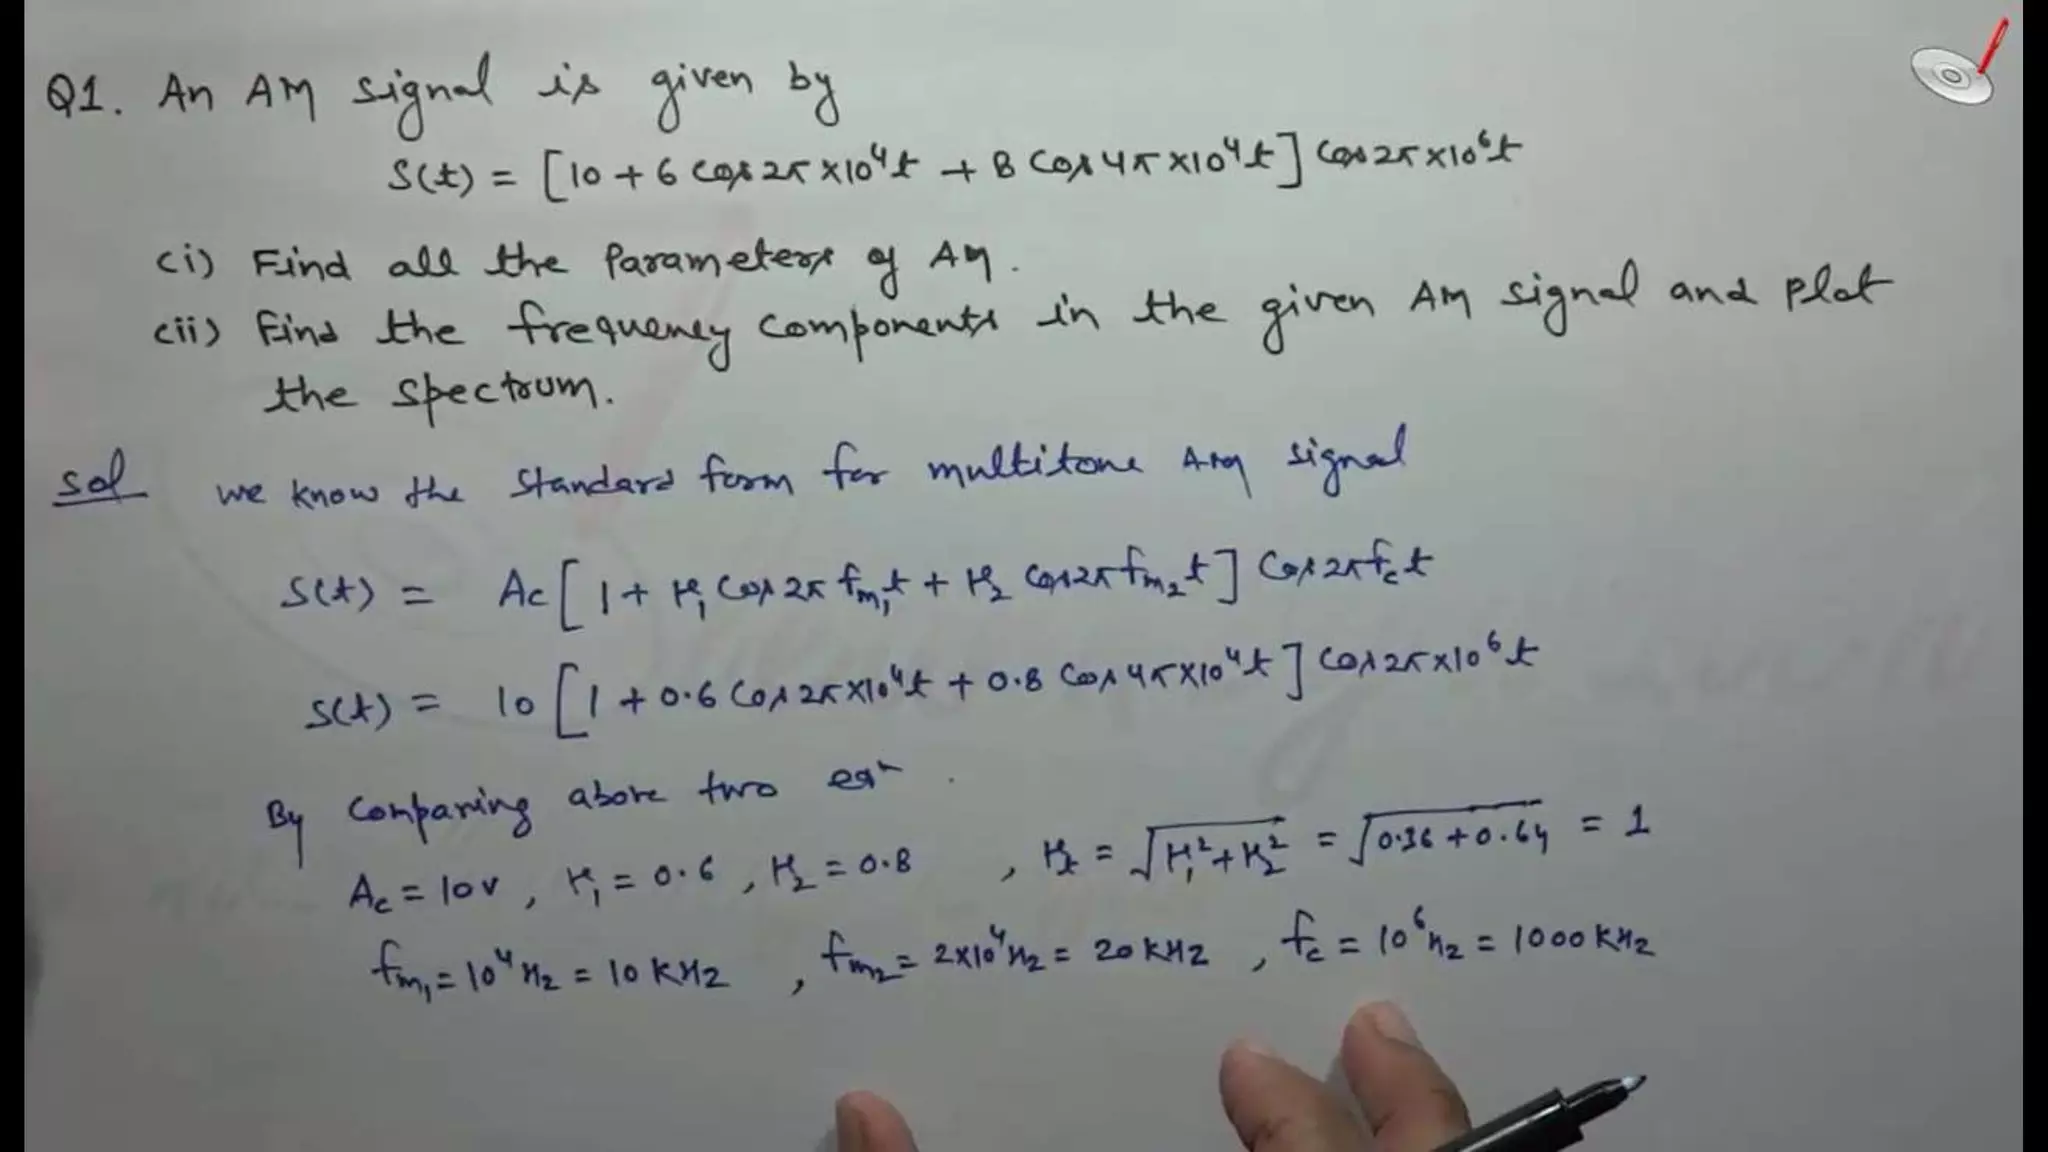 Q1. An AM signal is given by
S(t) = [10 + 6 cos 2π×10⁴t + 8 cos 4π×10⁴t] cos 2π×10⁶t
(i) Find all the Parameters of AM.
(ii) Find the frequency components in the given AM signal and plot
the spectrum.
Sol we know the standard form for multitone AM signal
S(t) = Ac [1 + μ₁ cos 2π fm₁t + μ₂ cos 2π fm₂t] cos 2π fct
S(t) = 10 [1 + 0.6 cos 2π×10⁴t + 0.8 cos 4π×10⁴t] cos 2π×10⁶t
By comparing above two eqⁿ.
Ac = 10v, μ₁ = 0.6, μ₂ = 0.8, μt = √(μ₁² + μ₂²) = √(0.36 + 0.64) = 1
fm₁ = 10⁴Hz = 10 KHz, fm₂ = 2×10⁴Hz = 20 KHz, fc = 10⁶Hz = 1000 KHz